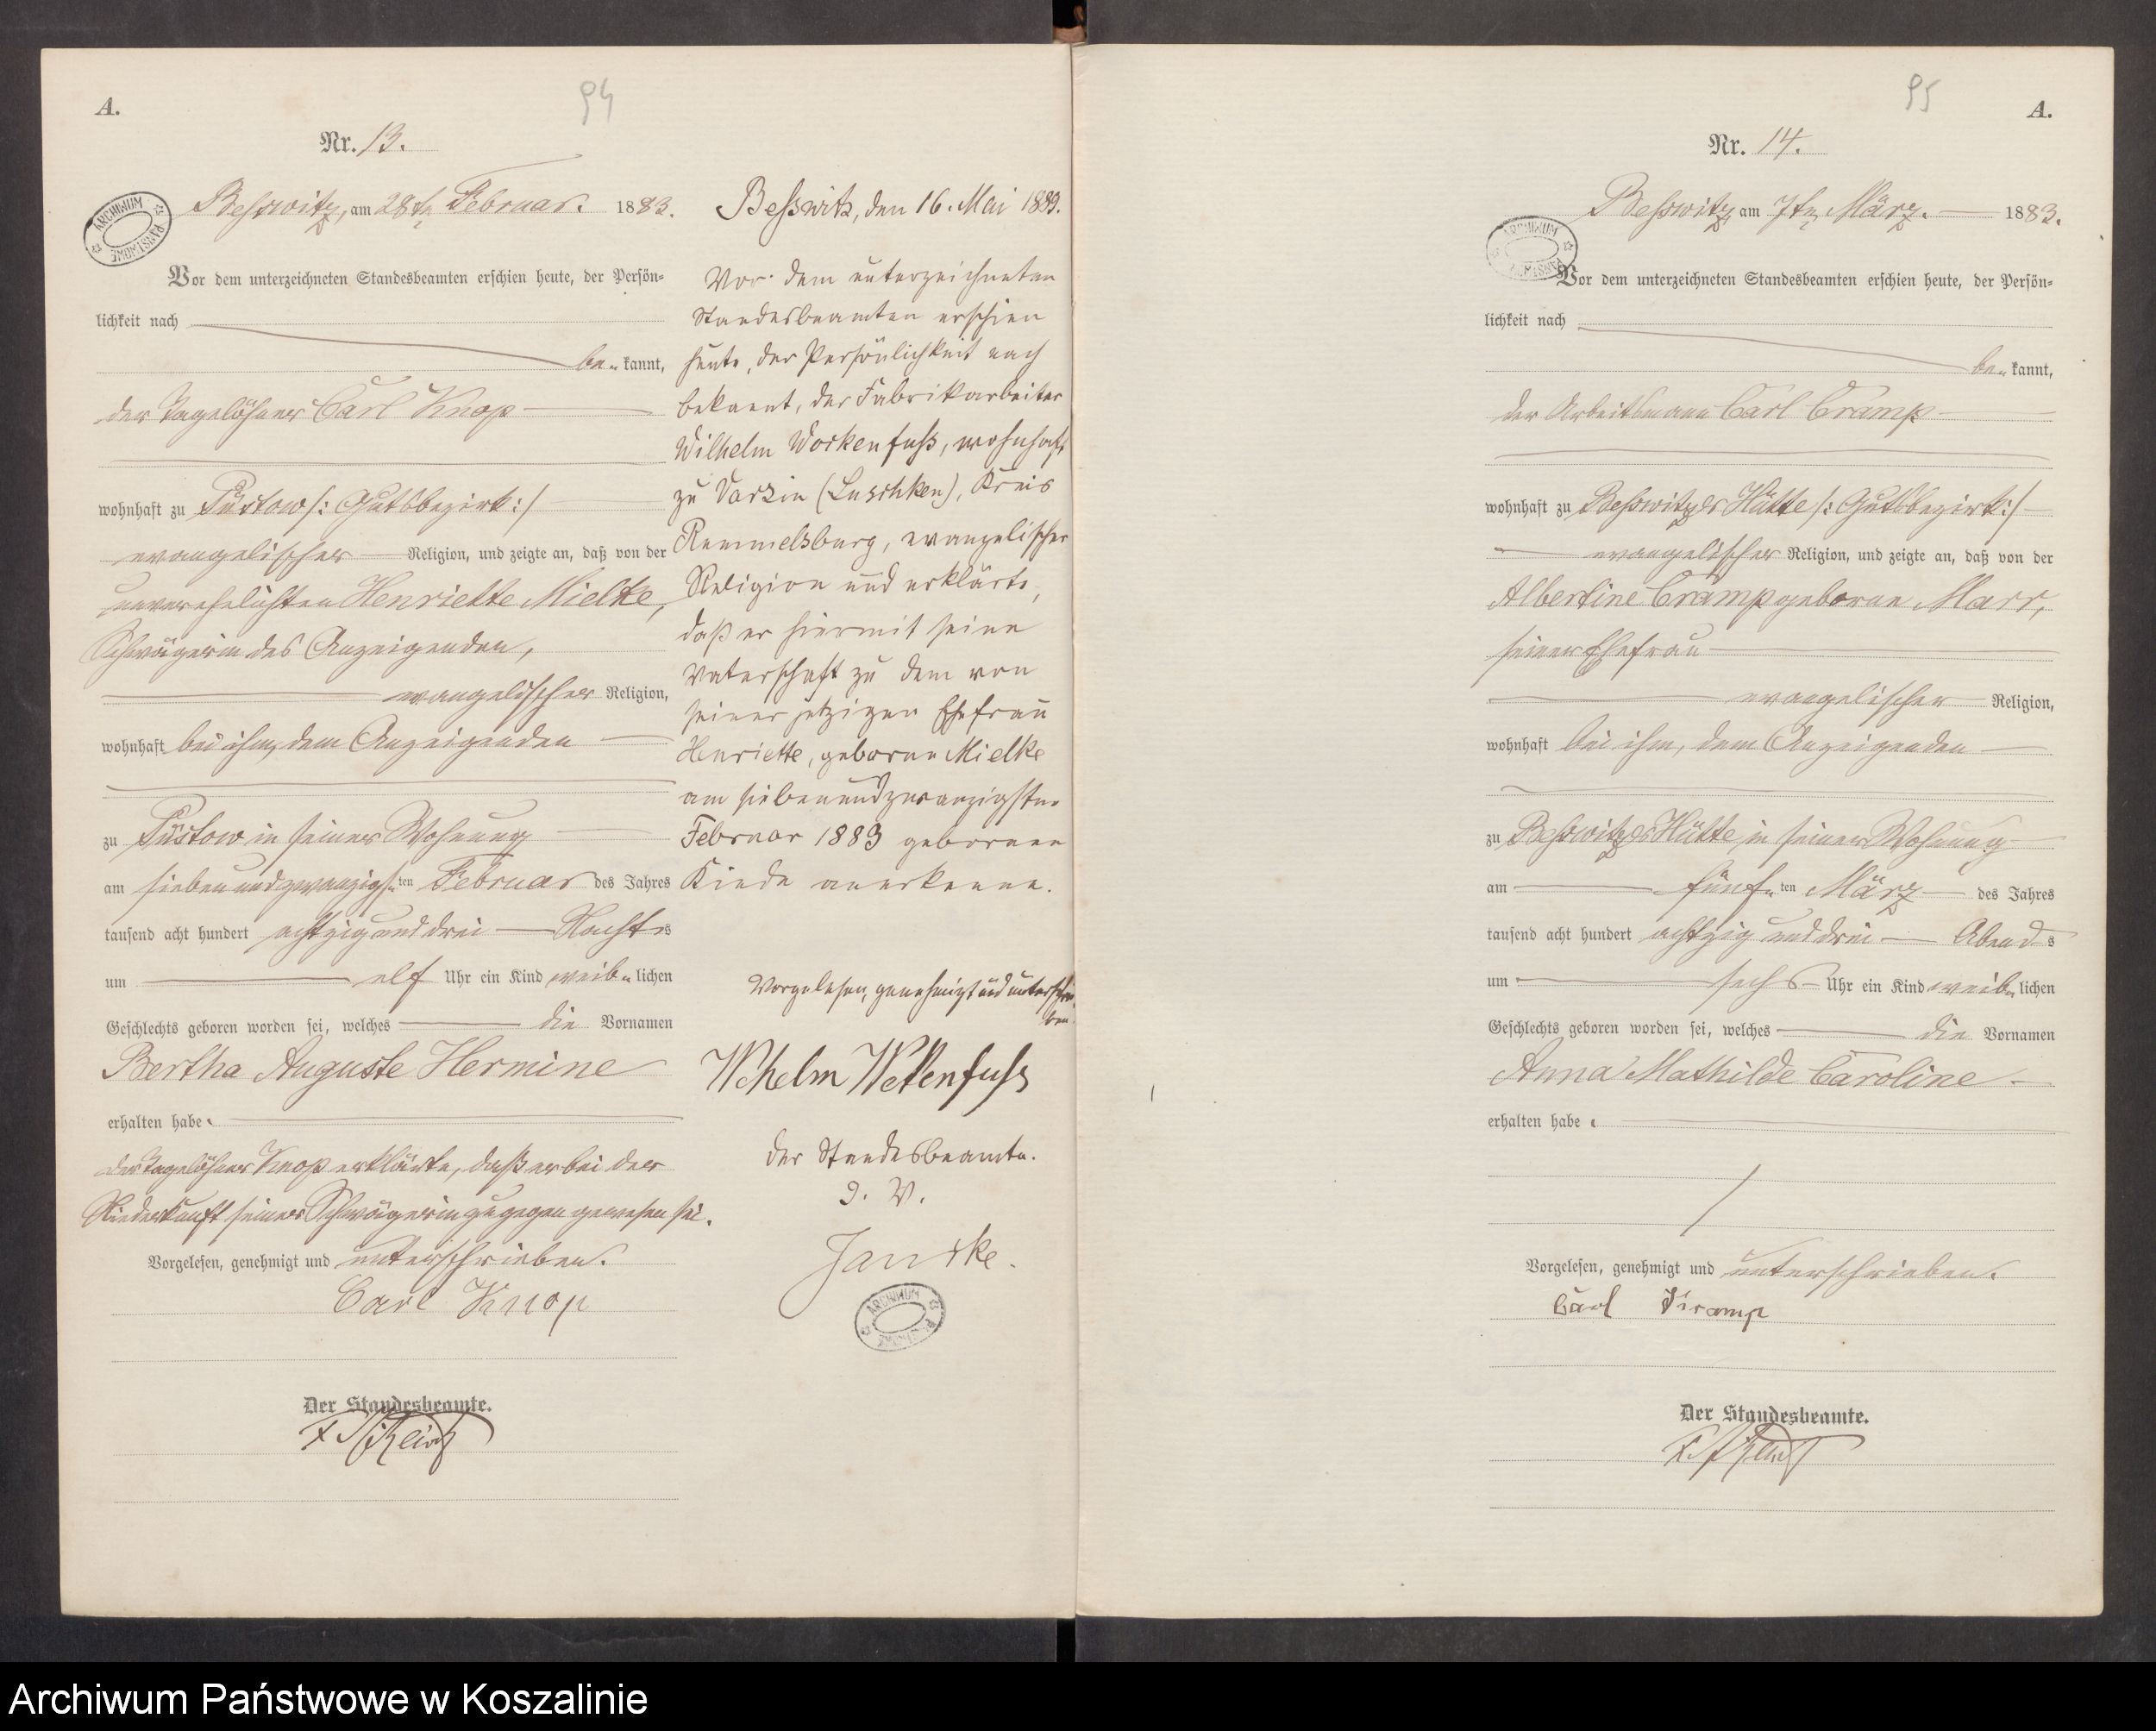 94
A.
Nr. 13.
Beßwitz, am 28tn Februar. 1883.
Vor dem unterzeichneten Standesbeamten erschien heute, der Persön-
lichkeit nach
be kannt,
der Tagelöhner Carl Knop
wohnhaft zu Püstow /: Gutsbezirk :/
evangelischer Religion, und zeigte an, daß von der
unverehelichten Henriette Mielke,
Schwägerin des Anzeigenden,
evangelischer Religion,
wohnhaft bei ihm, dem Anzeigenden
zu Püstow in seiner Wohnung
am siebenundzwanzigsten Februar des Jahres
tausend acht hundert achtzig und drei Nachts
um elf Uhr ein Kind weiblichen
Geschlechts geboren worden sei, welches die Vornamen
Bertha Auguste Hermine
erhalten habe.
Der Tagelöhner Knop erklärte, daß er bei der
Niederkunft seiner Schwägerin zugegen gewesen sei.
Vorgelesen, genehmigt und unterschrieben.
Carl Knop
Der Standesbeamte.
Beßwitz, den 16. Mai 1889.
Vor dem unterzeichneten
Standesbeamten erschien
heute, der Persönlichkeit nach
bekannt, der Fabrikarbeiter
Wilhelm Workenfuß, wohnhaft
zu Varzin (Luschken), Kreis
Rummelsburg, evangelischer
Religion und erklärte,
daß er hiermit seine
Vaterschaft zu dem von
seiner jetzigen Ehefrau
Henriette, geborne Mielke
am siebenundzwanzigsten
Februar 1883 gebornen
Kinde anerkenne.
Vorgelesen, genehmigt und unterschrie-
ben.
Der Standesbeamte.
J. V.
Jantke.
95
A.
Nr. 14.
Beßwitz, am 7tn März. 1883.
Vor dem unterzeichneten Standesbeamten erschien heute, der Persön-
lichkeit nach
be kannt,
der Arbeitsmann Carl Cramp
wohnhaft zu Beßwitzer Hütte /: Gutsbezirk :/
evangelischer Religion, und zeigte an, daß von der
Albertine Cramp geborne Marr,
seiner Ehefrau
evangelischer Religion,
wohnhaft bei ihm, dem Anzeigenden
zu Beßwitzer Hütte in seiner Wohnung
am fünften März des Jahres
tausend acht hundert achtzig und drei Abends
um sechs Uhr ein Kind weiblichen
Geschlechts geboren worden sei, welches die Vornamen
Anna Mathilde Caroline
erhalten habe.
Vorgelesen, genehmigt und unterschrieben.
Carl Kramp
Der Standesbeamte.
Archiwum Państwowe w Koszalinie